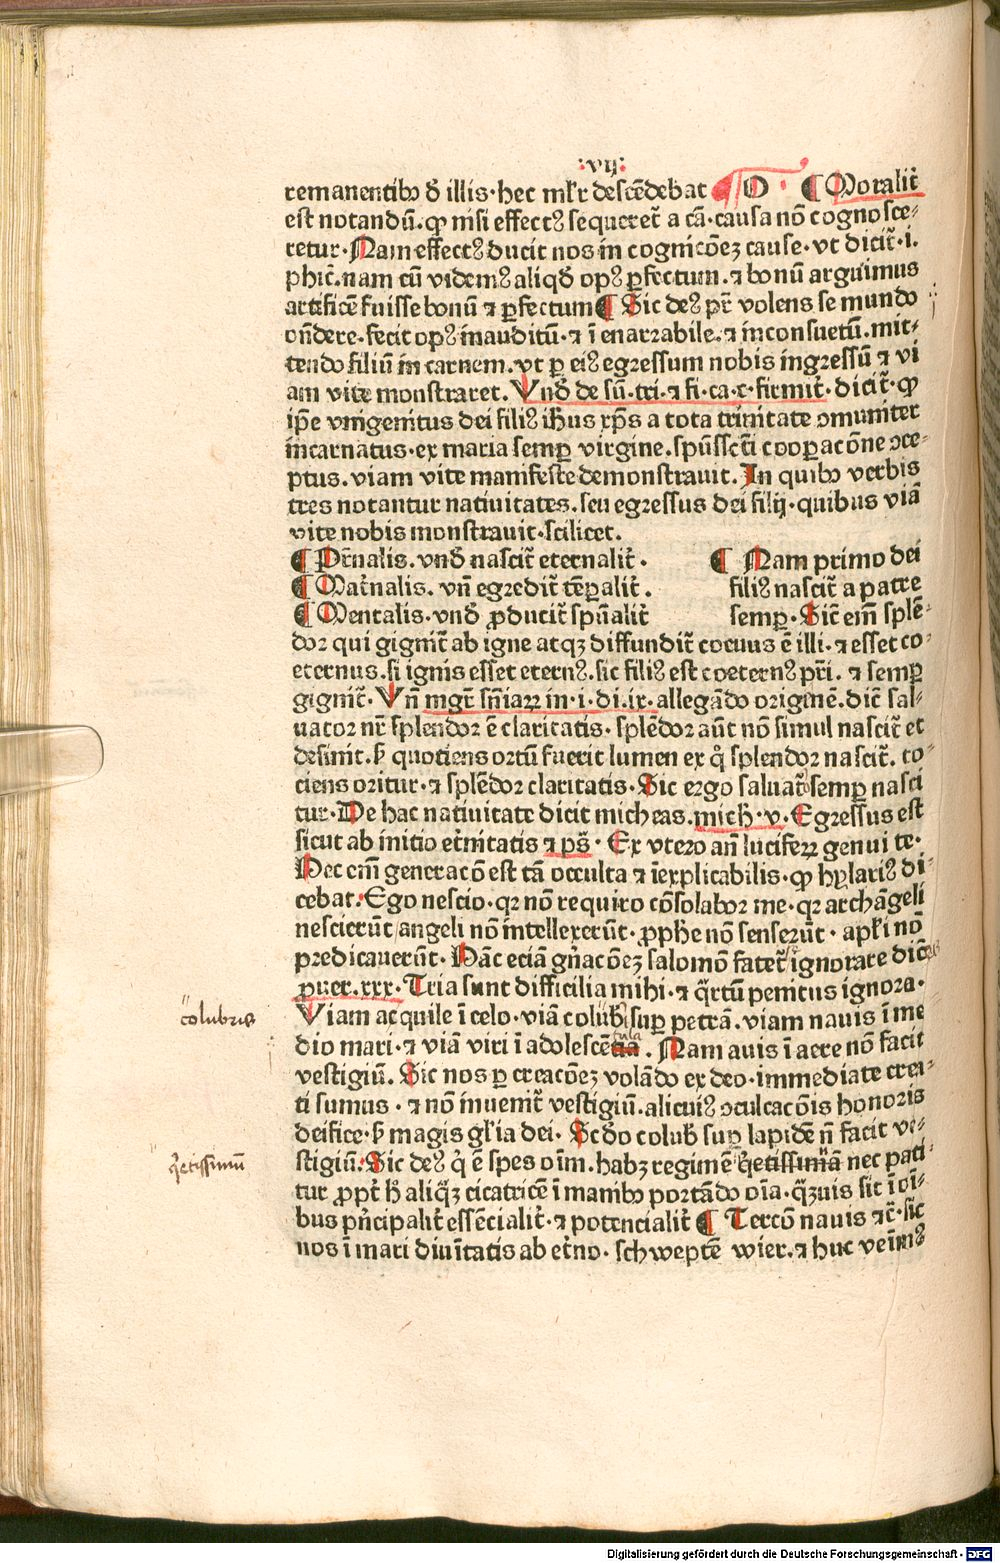 :vij:
remanentibꝰ đ illis·hec mlʼr descēdebat ¶ O · ¶ Moralit̄
est notandū.ꝙ nisi effectꝰ sequeret̄ a cā·causa nō cognosce⸗
retur·Nam effectꝰ ducit nos in cognicōeꝫ cause·vt dicit̄·i.
phic̄.nam cū videmꝰ aliqđ opꝰ ꝑfectum.⁊ bonū arguimus
artificē fuisse bonū ⁊ ꝑfectum ¶ Sic deꝰ pr̄ volens se mundo
on̄dere·fecit opꝰ inauditū·⁊ ī enarrabile.⁊ inconsuetū.mit⸗
tendo filiū in carnem.vt ꝑ eiꝰ egressum nobis ingressū ⁊ vi
am vite monstraret.Vnđ de sū·tri·⁊ fi·ca·c·firmit̄·dicit̄·ꝙ
ip̄e vnigenitus dei filiꝰ ih̄us xp̄s a tota trinitate ꝯmuniter
incarnatus·ex maria semꝑ virgine.spūssct̄i cooꝑacōne ꝯce⸗
ptus.viam vite manifeste demonstrauit.In quibꝰ verbis
tres notantur natiuitates.seu egressus dei filij·quibus viā
vite nobis monstrauit·scilicet.
¶ Pr̄nalis.vnđ nascit̄ eternalit̄· ¶ Nam primo dei
¶ Mat̄nalis. vn̄ egredit̄ tēꝑalit̄. filiꝰ nascit̄ a patre
¶ Mentalis·vnđ ꝓducit̄ spūalit̄ semꝑ·Sic̄ em̄ splē⸗
dor qui gignit̄ ab igne atqꝫ diffundit̄ coeuus ē illi·⁊ esset co⸗
eternus.si ignis esset eternꝰ.sic filiꝰ est coeternꝰ pr̄i. ⁊ semꝑ
gignit̄·Vn̄ mgr̄ sn̄iaꝝ in·i·di.ix.allegādo originē.dic̄ sal⸗
uator nr̄ splendor ē claritatis·splēdor aūt nō simul nascit̄ et
desinit.ꞩ quotiens ortū fuerit lumen ex q̄ splendor nascit̄. to⸗
ciens oritur·⁊ splēdor claritatis·Sic ergo saluat̄ semꝑ nasci
tur·De hac natiuitate dicit micheas.mich·v·Egressus est
sicut ab initio et̄nitatis ⁊ ps̄· Ex vtero an̄ luciferꝝ genui te·
Hec em̄ generacō est tā occulta ⁊ īexplicabilis·ꝙ hylariꝰ di⸗
cebat·Ego nescio·qꝛ nō requiro cōsolabor me·qꝛ archāgeli
nescierūt angeli nō intellexerūt·ꝓphe nō senserūt·apłi nō
predicauerūt·Hāc eciā gn̄acōeꝫ salomō fatet̄ ignorare dicē
ꝓuer.xxx.Tria sunt difficilia mihi·⁊ q̄rtū penitus ignora·
Viam acquile ī celo·viā colub̄ suꝑ petrā.viam nauis ī me
colubris
dio mari·⁊ viā viri ī adolescētia . Nam auis ī aere nō facit
tula
vestigiū.Sic nos ꝑ creacōeꝫ volādo ex deo·immediate crea⸗
ti sumus·⁊ nō inuenit̄ vestigiū.alicuiꝰ ꝯculcacōis honoris
deifice·ꞩ magis gl̓ia dei. Scđo colub̄ suꝑ lapidē n̄ facit ve⸗
stigiū.Sic deꝰ q̓ ē spes oīm.habꝫ regimē q̓etissimā nec pati⸗
q̓etissimū
tur ꝓpt̄ ħ aliq̄ꝫ cicatricē ī manibꝰ portādo oīa.q̄ꝫuis sit ī oī⸗
bus pn̄cipalit̄ essēcialit̄·⁊ potencialit̄ ¶ Tercō nauis ⁊c̄·sic̄
nos ī mari diuītatis ab et̄no·schweptē wier.⁊ huc veīmꝰ
Digitalisierung gefördert durch die Deutsche Forschungsgemeinschaft · DFG